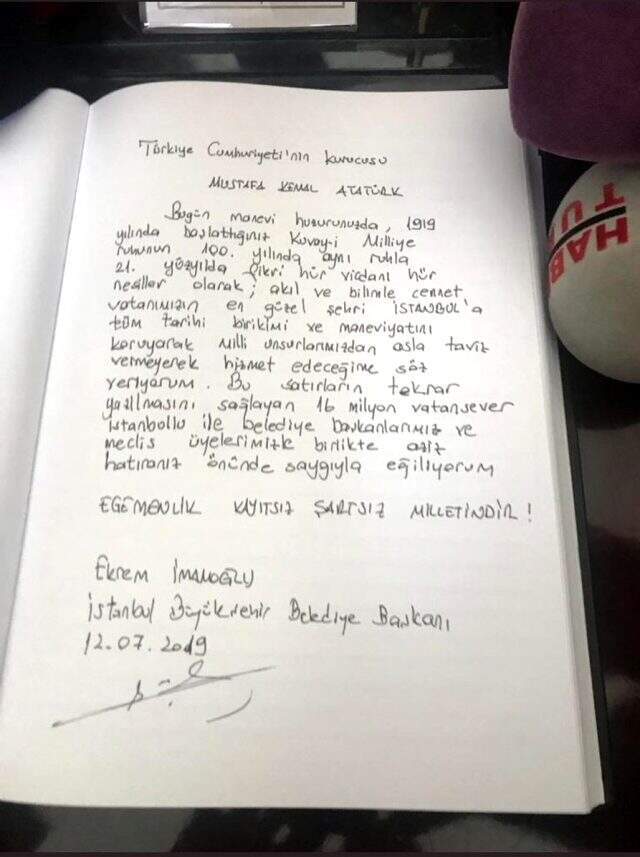 Türkiye Cumhuriyeti'nin kurucusu
MUSTAFA KEMAL ATATÜRK
Bugün manevi huzurunuzda, 1919
yılında başlattığınız Kuvay-i Milliye
ruhunun 100. yılında aynı ruhla
21. yüzyılda fikri hür vicdanı hür
nesiller olarak; akıl ve bilimle cennet
vatanımızın en güzel şehri İSTANBUL'a
tüm tarihi birikimi ve maneviyatını
koruyarak milli unsurlarımızdan asla taviz
vermeyerek hizmet edeceğime söz
veriyorum. Bu satırların tekrar
yazılmasını sağlayan 16 milyon vatansever
İstanbullu ile belediye başkanlarımız ve
meclis üyelerimizle birlikte aziz
hatıranız önünde saygıyla eğiliyorum
EGEMENLİK KAYITSIZ ŞARTSIZ MİLLETİNDİR!
Ekrem İMAMOĞLU
İstanbul Büyükşehir Belediye Başkanı
12.07.2019
HAB
TU